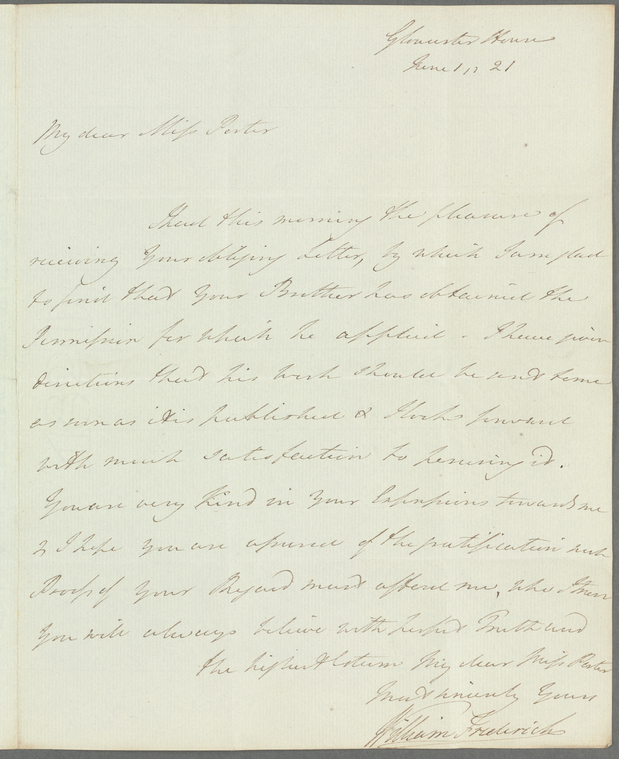 Gloucester House
June 1,, 21
My dear Miss Porter
I had this morning the pleasure of
receiving Your obliging Letter, by which I am glad
to find that Your Brother has obtained the
Permission for which he applied. I have given
directions that his work should be sent to me
as soon as it is published & I look forward
with much satisfaction to perusing it.
You are very kind in Your Expressions towards me
& I hope You are assured of the gratification such
Proofs of Your Regard must afford me, who I trust
You will always believe with perfect Truth and
the highest Esteem My dear Miss Porter
Most sincerely Yours
William Frederick